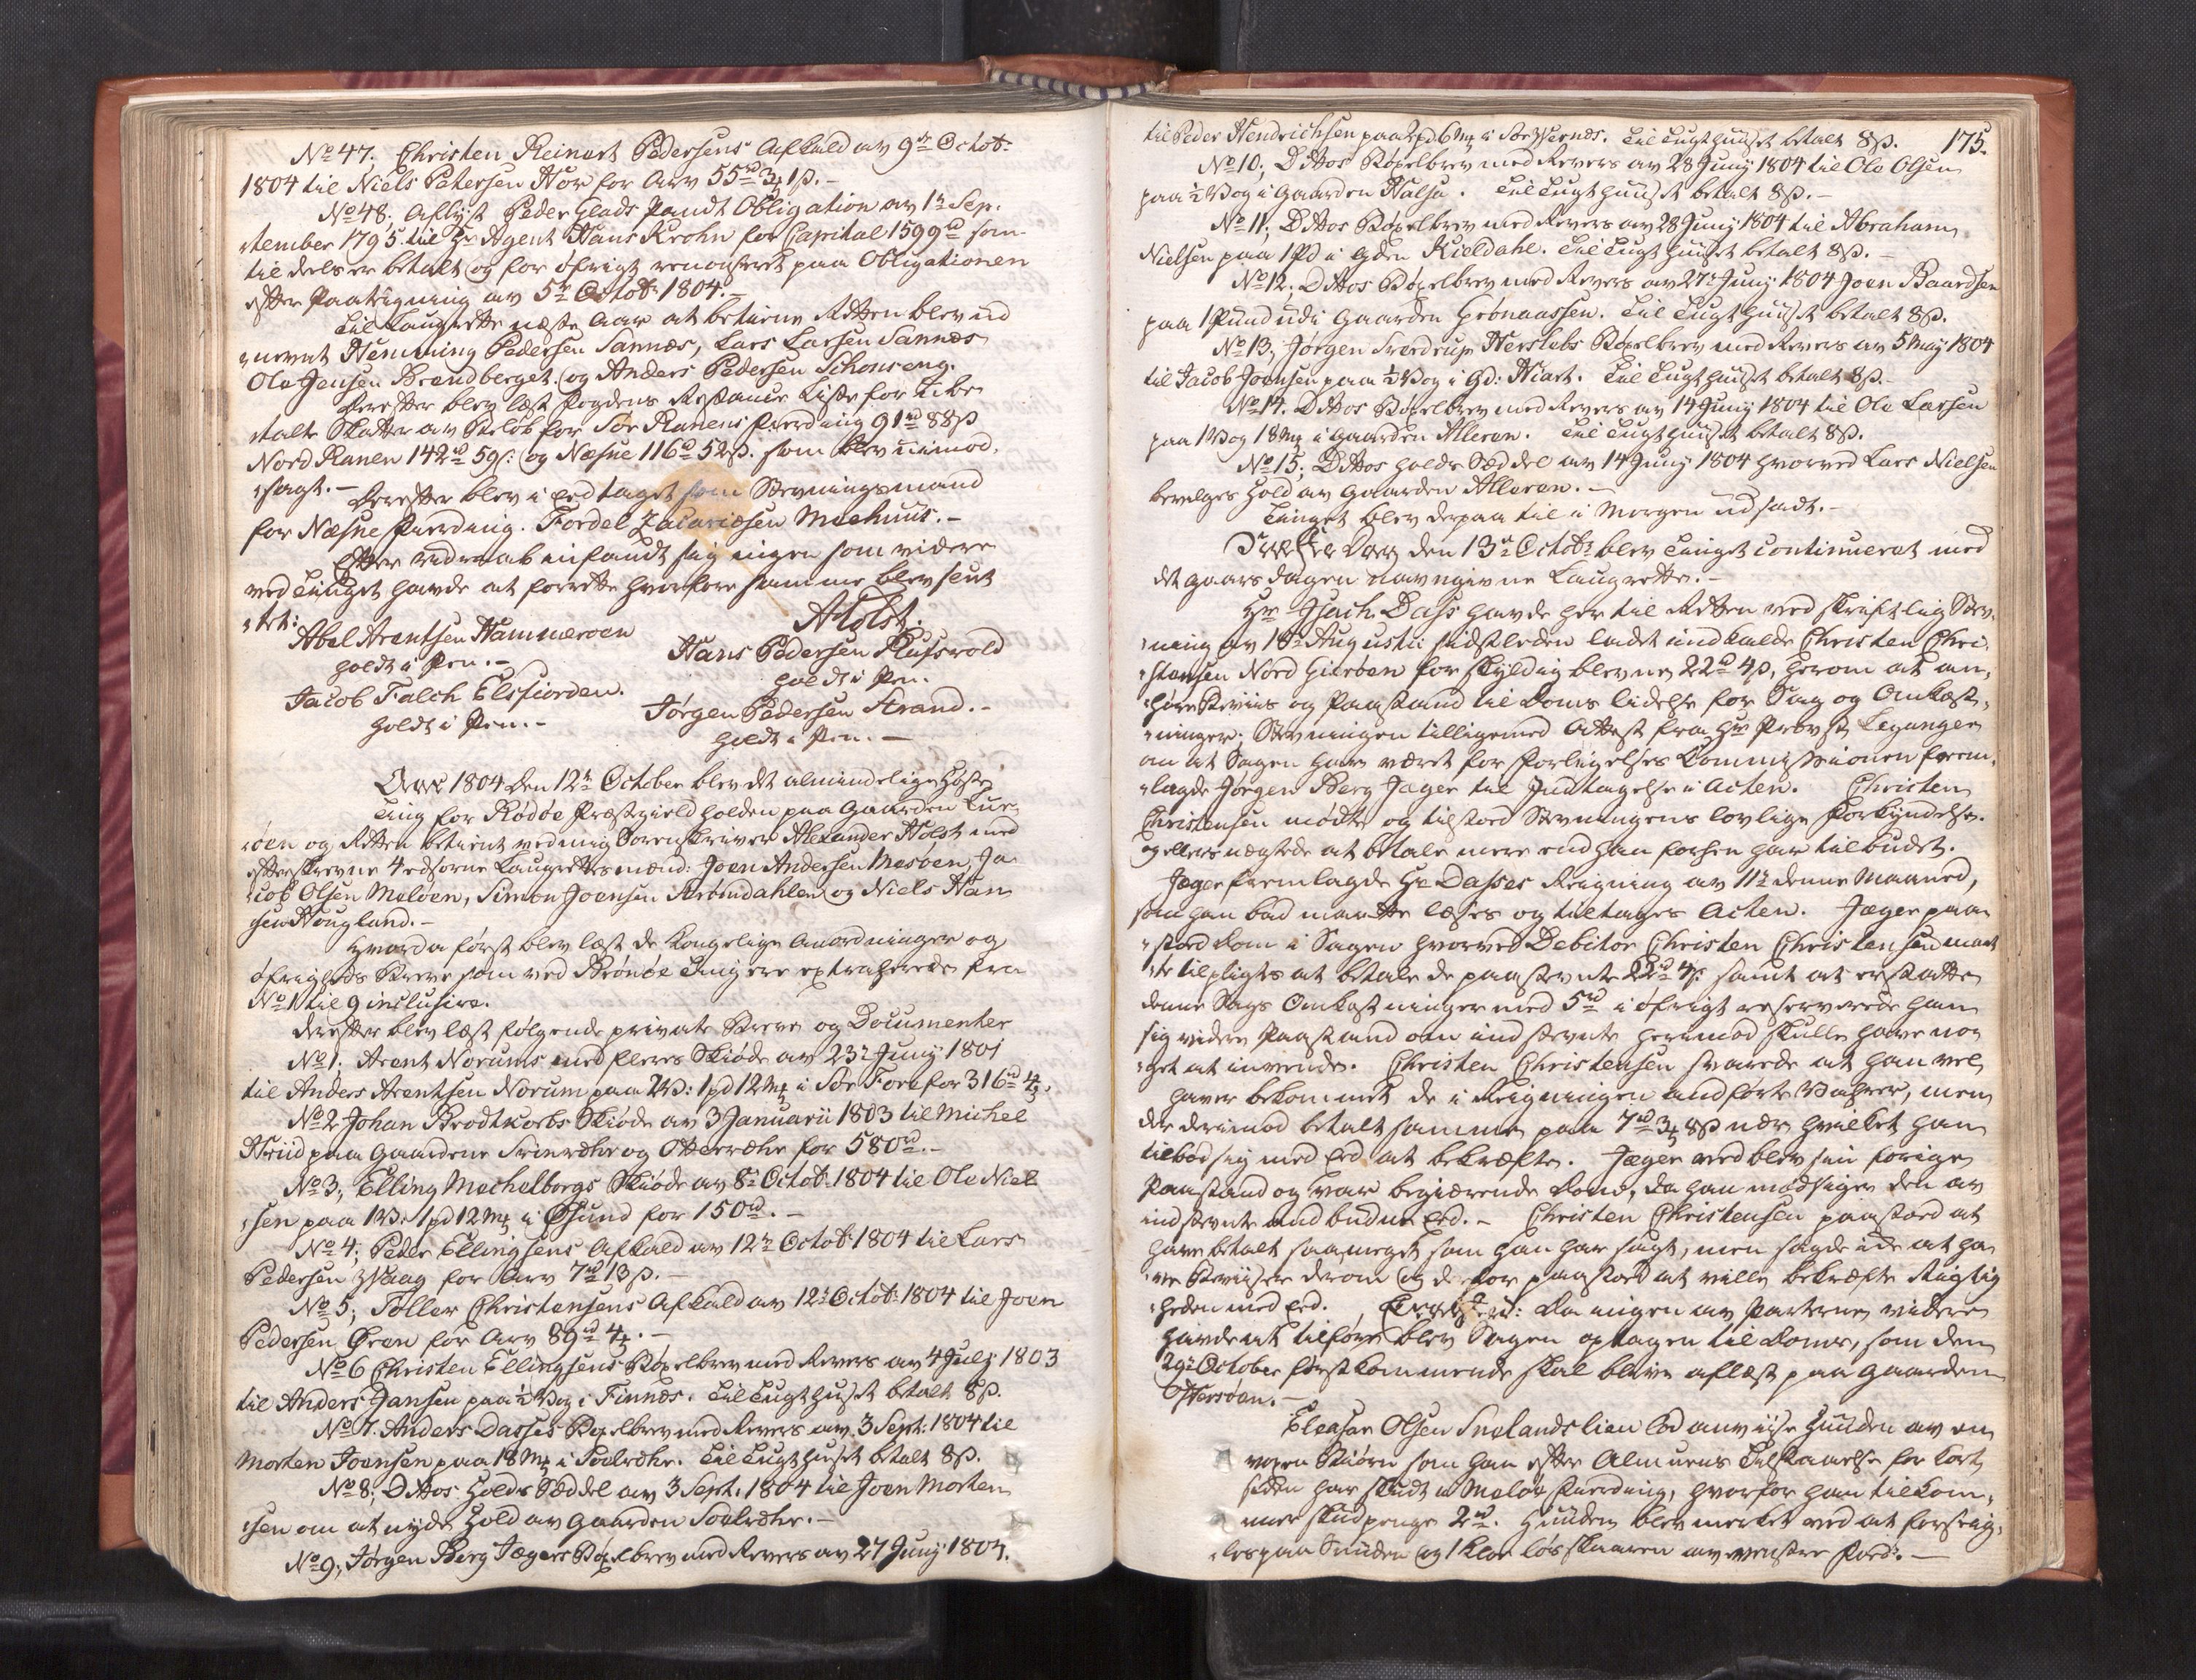 No 47. Christen Reinert Pedersens Afkald av 9de Octob:
1804 til Niels Petersen Nor for Arv 55rd 3 1ß.-
No 48. Aflyst Peder Glads Pandt Obligation av 1te Sep-
tember 1795 til Hr Agent Hans Krohn for Capital 1599rd som
til deels er betalt og for øfrigt renonseret paa Obligationen
efter Paategning av 5te Octob: 1804.-
Til Laugrette næste Aar at betiene Retten blev ud
nævnt Hemming Pedersen Sannæs, Lars Larsen Sannæs
Ole Jensen Brendberget og Anders Pedersen Schonseng.
Derefter blev læst Fogdens Restance Liste for ube
talte Skatter av Beløb for Sør Ranens Fierding 91rd 88ß
Nord Ranen 142rd 59ß: og Næsne 116rd 52ß. som blev uimod-
sagt.- Derefter blev i Eed taget som Stevningsmand
for Næsne Fierding. Fordel Zacariasen Moehuus.-
Efter Udraab indfandt sig ingen som videre
ved Tinget havde at forrette hvorfore samme blev slut
tet:
AHolst.
Abel Arentsen Hammeroen
holdt i Pen.-
Hans Pedersen Flusvold
holdt i Pen.
Jacob Falch Elsfiorden.
holdt i Pen.-
Jørgen Pedersen Strand.-
holdt i Pen.-
Aar 1804 den 12te October blev det almindelige Høste
Ting for Rødøe Præstegield holden paa Gaarden Lur-
øen og Retten betient ved mig Sorenskriver Alexander Holst med
efterskrevne 4 edsorne Laugrettesmænd: Joen Andersen Mesøen, Ja
cob Olsen Meløen, Simon Joensen Strømdahlen og Niels Han
sen Hougland.-
Hvorda først blev læst de Kongelige Anordninger og
øfrigheds Breve som ved Brønøe Ting ere extraherede fra
No 1 til 9 inclusive.
Derefter blev læst følgende private Breve og Documenter
No 1. Arent Norums med fleres Skiøde av 23de Juny 1801
til Anders Arentsen Norum paa 2V: 1pd 12mk i Sør Fore for 316rd 4
No 2 Johan Brodtkorbs Skiøde av 3 Januarii 1803 til Michel
Hviid paa Gaardene Svinvær og Ottervære for 580rd.-
No 3, Elling Mechelborgs Skiøde av 8de Octob: 1804 til Ole Niel
sen paa 1V: 1pd 12mk i Øsund for 150rd.-
No 4, Peder Ellingsens Afkald av 12te Octob: 1804 til Lars
Pedersen Vaag for Arv 7rd 13ß.-
No 5, Toller Christensens Afkald av 12te Octob: 1804 til Joen
Pedersen Øren for Arv 89rd 4.-
No 6 Christen Ellingsens Bøxelbrev med Revers av 4 July 1803
til Anders Jansen paa ½ Vog i Finnæs. Til Tugthuset betalt 8ß.
No 7. Anders Dasses Bøxelbrev med Revers av 3 Sept: 1804 til
Morten Joensen paa 18mk i Selvær. Til Tugthuset betalt 8ß.
No 8, Dittos Holds Seddel av 3 Sept: 1804 til Joen Morten
sen om at nyde Hold av Gaarden Selvær.-
No 9, Jørgen Berg Jægers Bøxelbrev med Revers av 27 Juny 1804.
175.
til Peder Hendrichsen paa 2pd 6mk i Sør Værnæs. Til Tugthuuset betalt 8ß.
No 10, Dittos Bøxelbrev med Revers av 28 Juny 1804 til Ole Olsen
paa ½ Vog i Gaarden Halsa. Til Tugthuuset betalt 8ß.-
No 11, Dittos Bøxelbrev med Revers av 28 Juny 1804 til Abraham
Nielsen paa 1Pd i Gden Kieldahl. Til Tugthuuset betalt 8ß.-
No 12, Dittos Bøxelbrev med Revers av 27de Juny 1804 Joen Baardsen
paa 1 Pund udi Gaarden Grønaassen. Til Tugthuuset betalt 8ß.
No 13, Jørgen Sverdrup Herslebs Bøxelbrev med Revers av 5 May 1804
til Jacob Joensen paa ½ Vog i Gd: Hiart. Til Tugthuuset betalt 8ß.-
No 14. Dittos Bøxelbrev med Revers av 14 Juny 1804 til Ole Larsen
paa 1 Vog 18mk i Gaarden Alleren. Til Tugthuuset betalt 8ß.
No 15, Dittos Holds Seddel av 14 Juny 1804 hvorved Lars Nielsen
bevilges Hold av Gaarden Alleren.-
Tinget blev derpaa til i Morgen udsadt.-
den 13de Octob: blev Tinget continueret med
det Gaarsdagen navngivne Laugrette.-
Hr Isach Dass havde her til Retten ved skriftlig Stev-
ning av 18de Augustii sidstleden ladet indkalde Christen Chri-
stensen Nord Gierøen for skyldig blevne 22rd 4ß, herom at an-
høre Beviis og Paastand til Doms lidelse for Sag og Omkost-
ninger. Stevningen tilligemed Attest fra Hr Provst Leganger
om at Sagen har været for Forligelses Commissionen frem-
lagde Jørgen Berg Jæger til Indtagelse i Acten. Christen
Christensen mødte og tilstod Stevningens lovlige Forkyndelse.
og ellers nægtede at betale mere end han forhen har tilbudet.
Jæger fremlagde Hr Dasses Reigning av 11te denne Maaned,
som han bad maatte læses og tiltages Acten. Jæger paa-
stod Dom i Sagen hvorved Debitor Christen Christensen maat
te tilpligtes at betale de paastevnte 22rd 4ß: samt at erstatte
denne Sags Omkostninger med 5rd i øfrigt reserverede han
sig videre Paastand om indstevnte herimod skulle have no-
get at invende. Christen Christensen svarede at han vel
haver bekommet de i Reigningen andførte Vahrer, men
der derimod betalt samme paa 7rd 3 8ß nær hvilket han
tilbød sig med Eed at bekræfte. Jæger vedblev sin forige
Paastand og var begiærende Dom, da han modsiger den av
indstevnte andbudne Eed.- Christen Christensen paastod at
have betalt saameget som han har sagt, men sagde icke at ha
ve Beviiser derom og derfor paastod at ville bekræfte Rigtig
heden med Eed. Da ingen av Parterne videre
havde at tilføre blev Sagen optagen til Doms, som den
29de October førstkommende skal blive aflæst paa Gaarden
Eleasar Olsen Snelandslien lod anviise Huden av en
voxen Biørn som han efter Almuens Tilstaaelse for kort
siden har skudt i Meløe Fierding, hvorfor han tilkom-
mer Skudpenge 2rd. Huuden blev merket ved at forseig-
les paa Snuden og 1 Kloe løsskaaren av venstre Fod:.-